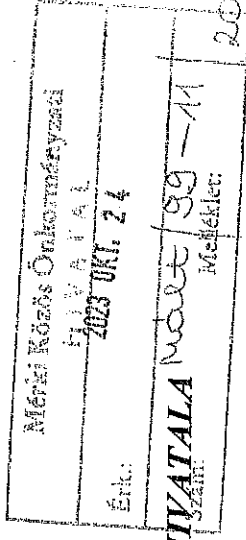 Mérki Közös Önkormányzati
HIVATAL
2023 OKT. 24
Érk.:
IVATALA
Szám: /99-11 / 20
Melléklet: